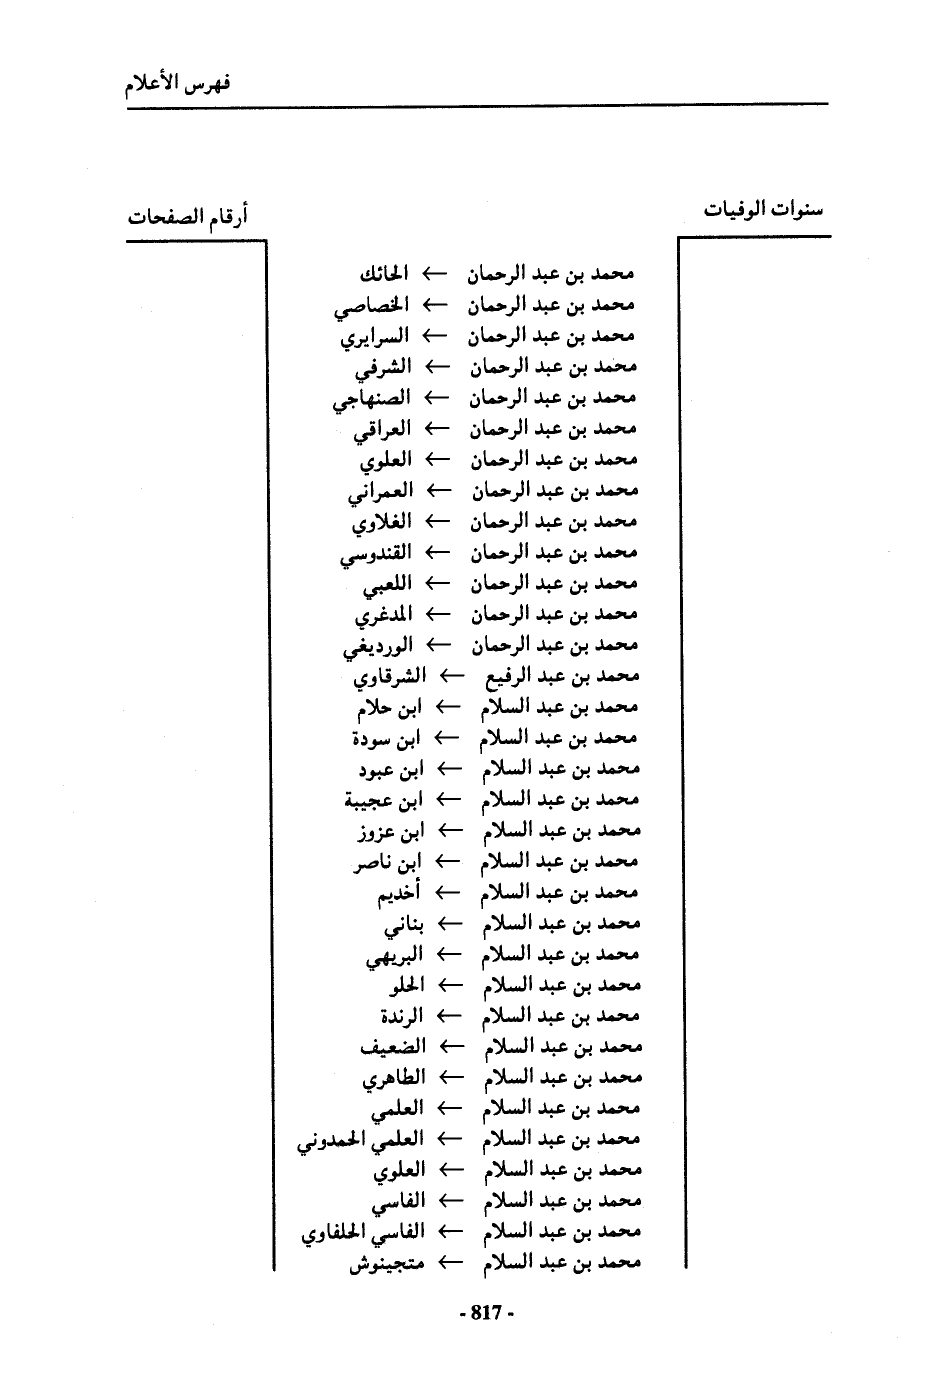 فهرس الأعلام
سنوات الوفيات
أرقام الصفحات
محمد بن عبد الرحمان ← الحائك
محمد بن عبد الرحمان ← الخصاصي
محمد بن عبد الرحمان ← السرايري
محمد بن عبد الرحمان ← الشرفي
محمد بن عبد الرحمان ← الصنهاجي
محمد بن عبد الرحمان ← العراقي
محمد بن عبد الرحمان ← العلوي
محمد بن عبد الرحمان ← العمراني
محمد بن عبد الرحمان ← الغلاوي
محمد بن عبد الرحمان ← القندوسي
محمد بن عبد الرحمان ← اللعبي
محمد بن عبد الرحمان ← المدغري
محمد بن عبد الرحمان ← الورديغي
محمد بن عبد الرفيع ← الشرقاوي
محمد بن عبد السلام ← ابن حلام
محمد بن عبد السلام ← ابن سودة
محمد بن عبد السلام ← ابن عبود
محمد بن عبد السلام ← ابن عجيبة
محمد بن عبد السلام ← ابن عزوز
محمد بن عبد السلام ← ابن ناصر
محمد بن عبد السلام ← أخديم
محمد بن عبد السلام ← بناني
محمد بن عبد السلام ← البريهي
محمد بن عبد السلام ← الحلو
محمد بن عبد السلام ← الرندة
محمد بن عبد السلام ← الضعيف
محمد بن عبد السلام ← الطاهري
محمد بن عبد السلام ← العلمي
محمد بن عبد السلام ← العلمي الحمدوني
محمد بن عبد السلام ← العلوي
محمد بن عبد السلام ← الفاسي
محمد بن عبد السلام ← الفاسي الحلفاوي
محمد بن عبد السلام ← متجينوش
- 817 -